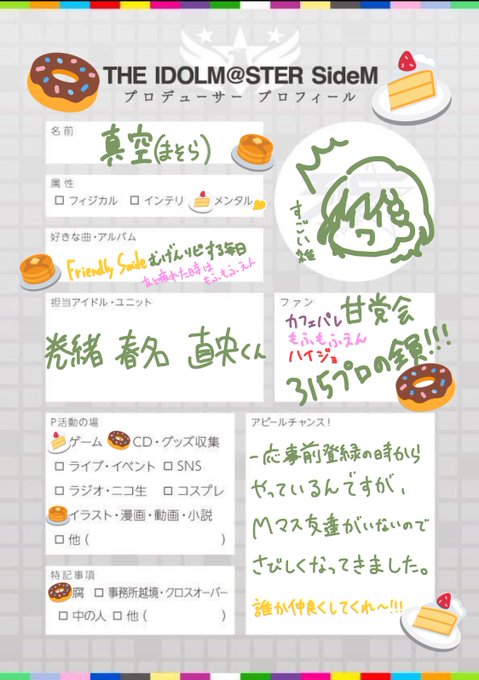 THE IDOLM@STER SideM
プロデューサー プロフィール
名前
真空(まそら)
属性
フィジカル
インテリ
メンタル
好きな曲・アルバム
Friendly Smileむげんリピする毎日
あと疲れた時は
もふもふえん
すごい雑
担当アイドル・ユニット
荘緒 春名 直央くん
ファン
カフェパレ 甘党会
もふもふえん
ハイジョ
315プロの全員!!!
P活動の場
ゲーム
CD・グッズ収集
ライブ・イベント
SNS
ラジオ・ニコ生
コスプレ
イラスト・漫画・動画・小説
他( )
アピールチャンス!
一応事前登録の時から
やっているんですが、
Mマス友達がいないので
さびしくなってきました。
誰か仲良くしてくれ~!!!
特記事項
腐
事務所越境・クロスオーバー
中の人
他( )